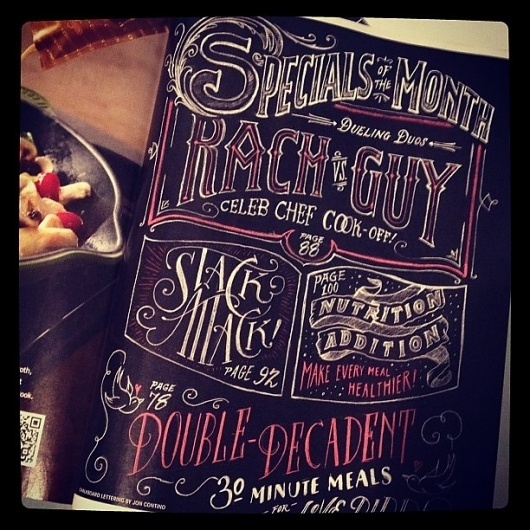 SPECIALS OF THE MONTH
DUELING DUOS
RACH VS GUY
CELEB CHEF COOK-OFF!
PAGE 88
STACK ATTACK!
PAGE 92
PAGE 100
NUTRITION
ADDITION
MAKE EVERY MEAL
HEALTHIER!
PAGE 78
DOUBLE-DECADENT
30 MINUTE MEALS
FOR
CHALKBOARD LETTERING BY JON CONTINO